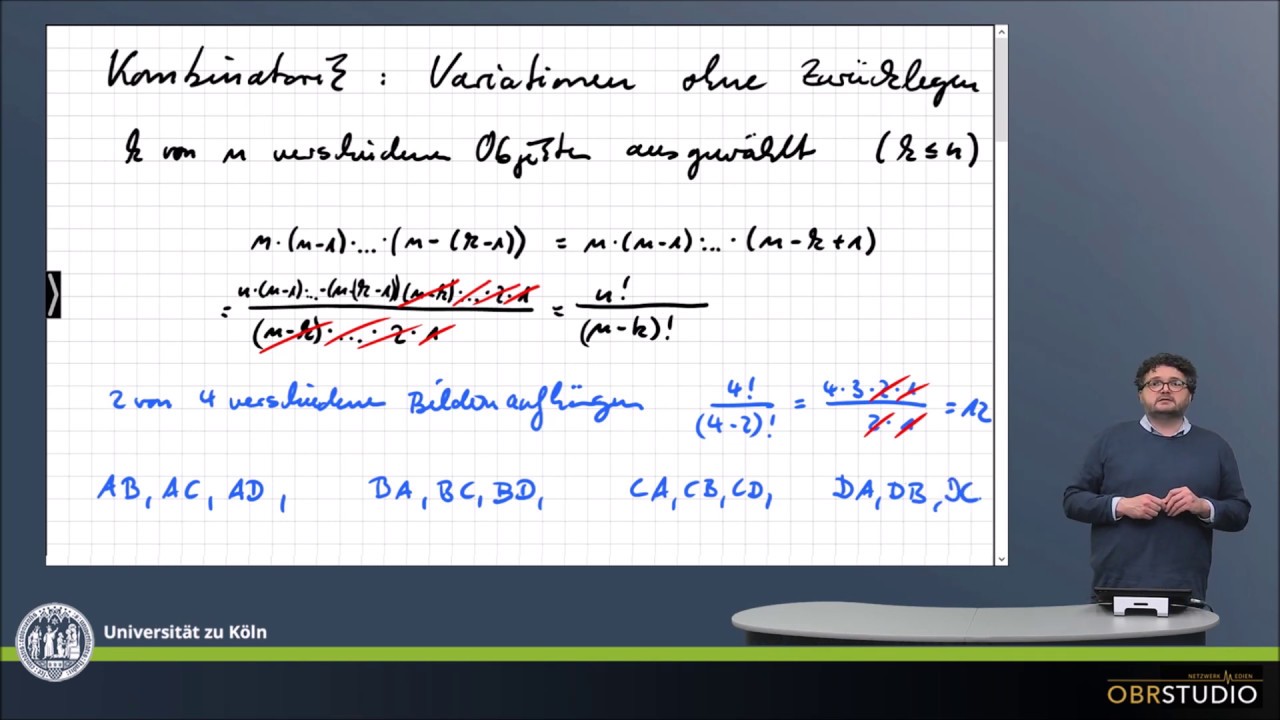 Kombinatorik : Variationen ohne Zurücklegen
k von n verschiedenen Objekten ausgewählt (k≤n)
n·(n-1)·...·(n-(k-1)) = n·(n-1)·...·(n-k+1)
= n·(n-1)·...·(n-(k-1))(n-k)·...·2·1 / (n-k)·...·2·1 = n! / (n-k)!
2 von 4 verschiedenen Bildern aufhängen 4! / (4-2)! = 4·3·2·1 / 2·1 = 12
AB, AC, AD, BA, BC, BD, CA, CB, CD, DA, DB, DC
Universität zu Köln
NETZWERK MEDIEN
OBRSTUDIO